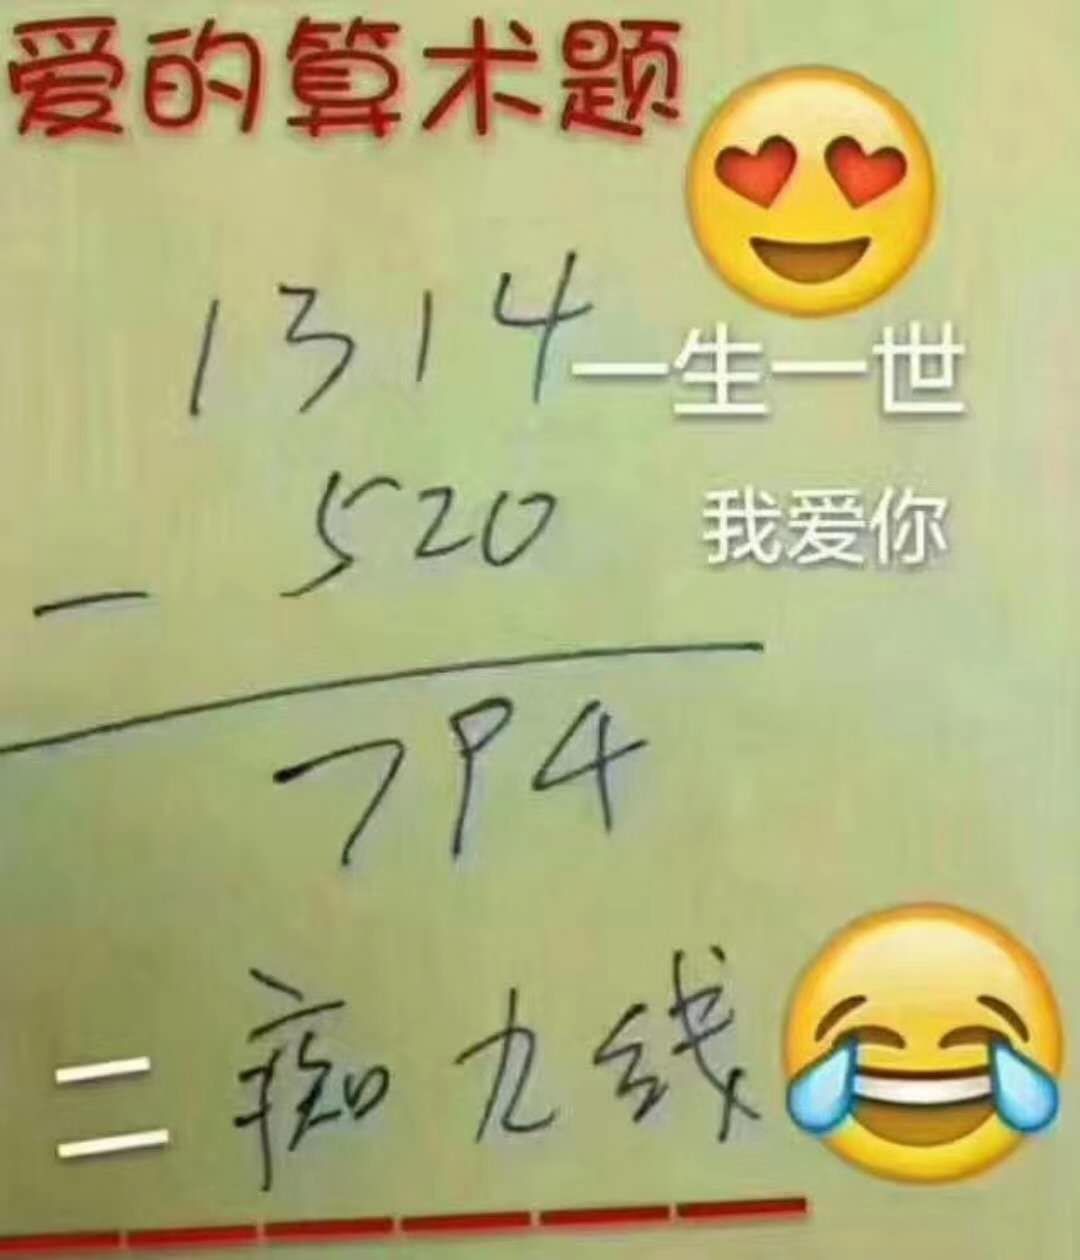 爱的算术题
1314 一生一世
520 我爱你
-
794
= 痴九线